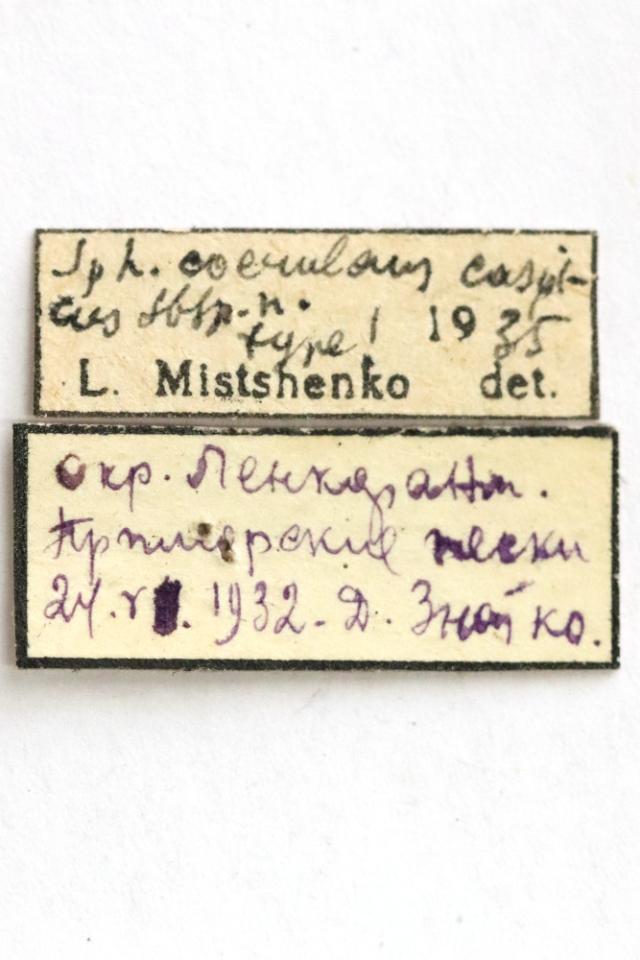 Sph. coerulans caspi-
cus sbsp. n.
type! 1935
L. Mistshenko det.
Окр. Ленкорани.
Приморские пески
24.V. 1932. Д. Знойко.